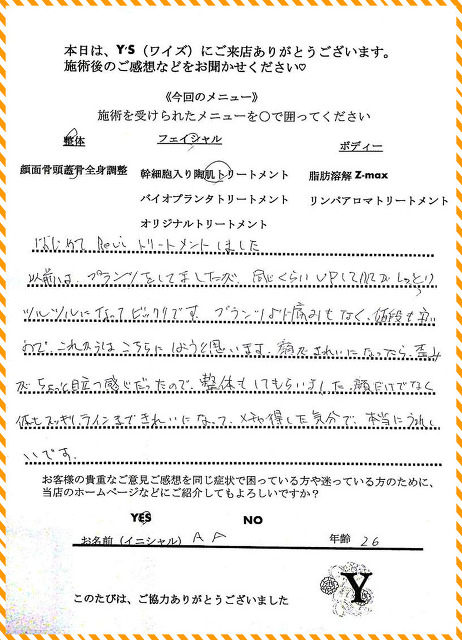 本日は、Y'S（ワイズ）にご来店ありがとうございます。
施術後のご感想などをお聞かせください♡
《今回のメニュー》
施術を受けられたメニューを〇で囲ってください
整体 フェイシャル ボディー
顔面骨頭蓋骨全身調整 幹細胞入り陶肌トリートメント 脂肪溶解 Z-max
バイオプランタトリートメント リンパアロマトリートメント
オリジナルトリートメント
はじめて Revi トリートメントしました
以前は、プランツをしてましたが、同じくらいUPして肌がしっとり
ツルツルになってビックリです。プランツより痛みもなく、値段も安い
ので、これからはこちらにしようと思います。肌がきれいになったら、歪み
がちょっと目立つ感じだったので、整体もしてもらいました。顔だけでなく
体もスッキリ、ラインまできれいになって、メチャ得した気分で、本当にうれし
いです。
お客様の貴重なご意見ご感想を同じ症状で困っている方や迷っている方のために、
当店のホームページなどにご紹介してもよろしいですか？
YES NO
お名前（イニシャル） A A 年齢 26
Y
このたびは、ご協力ありがとうございました